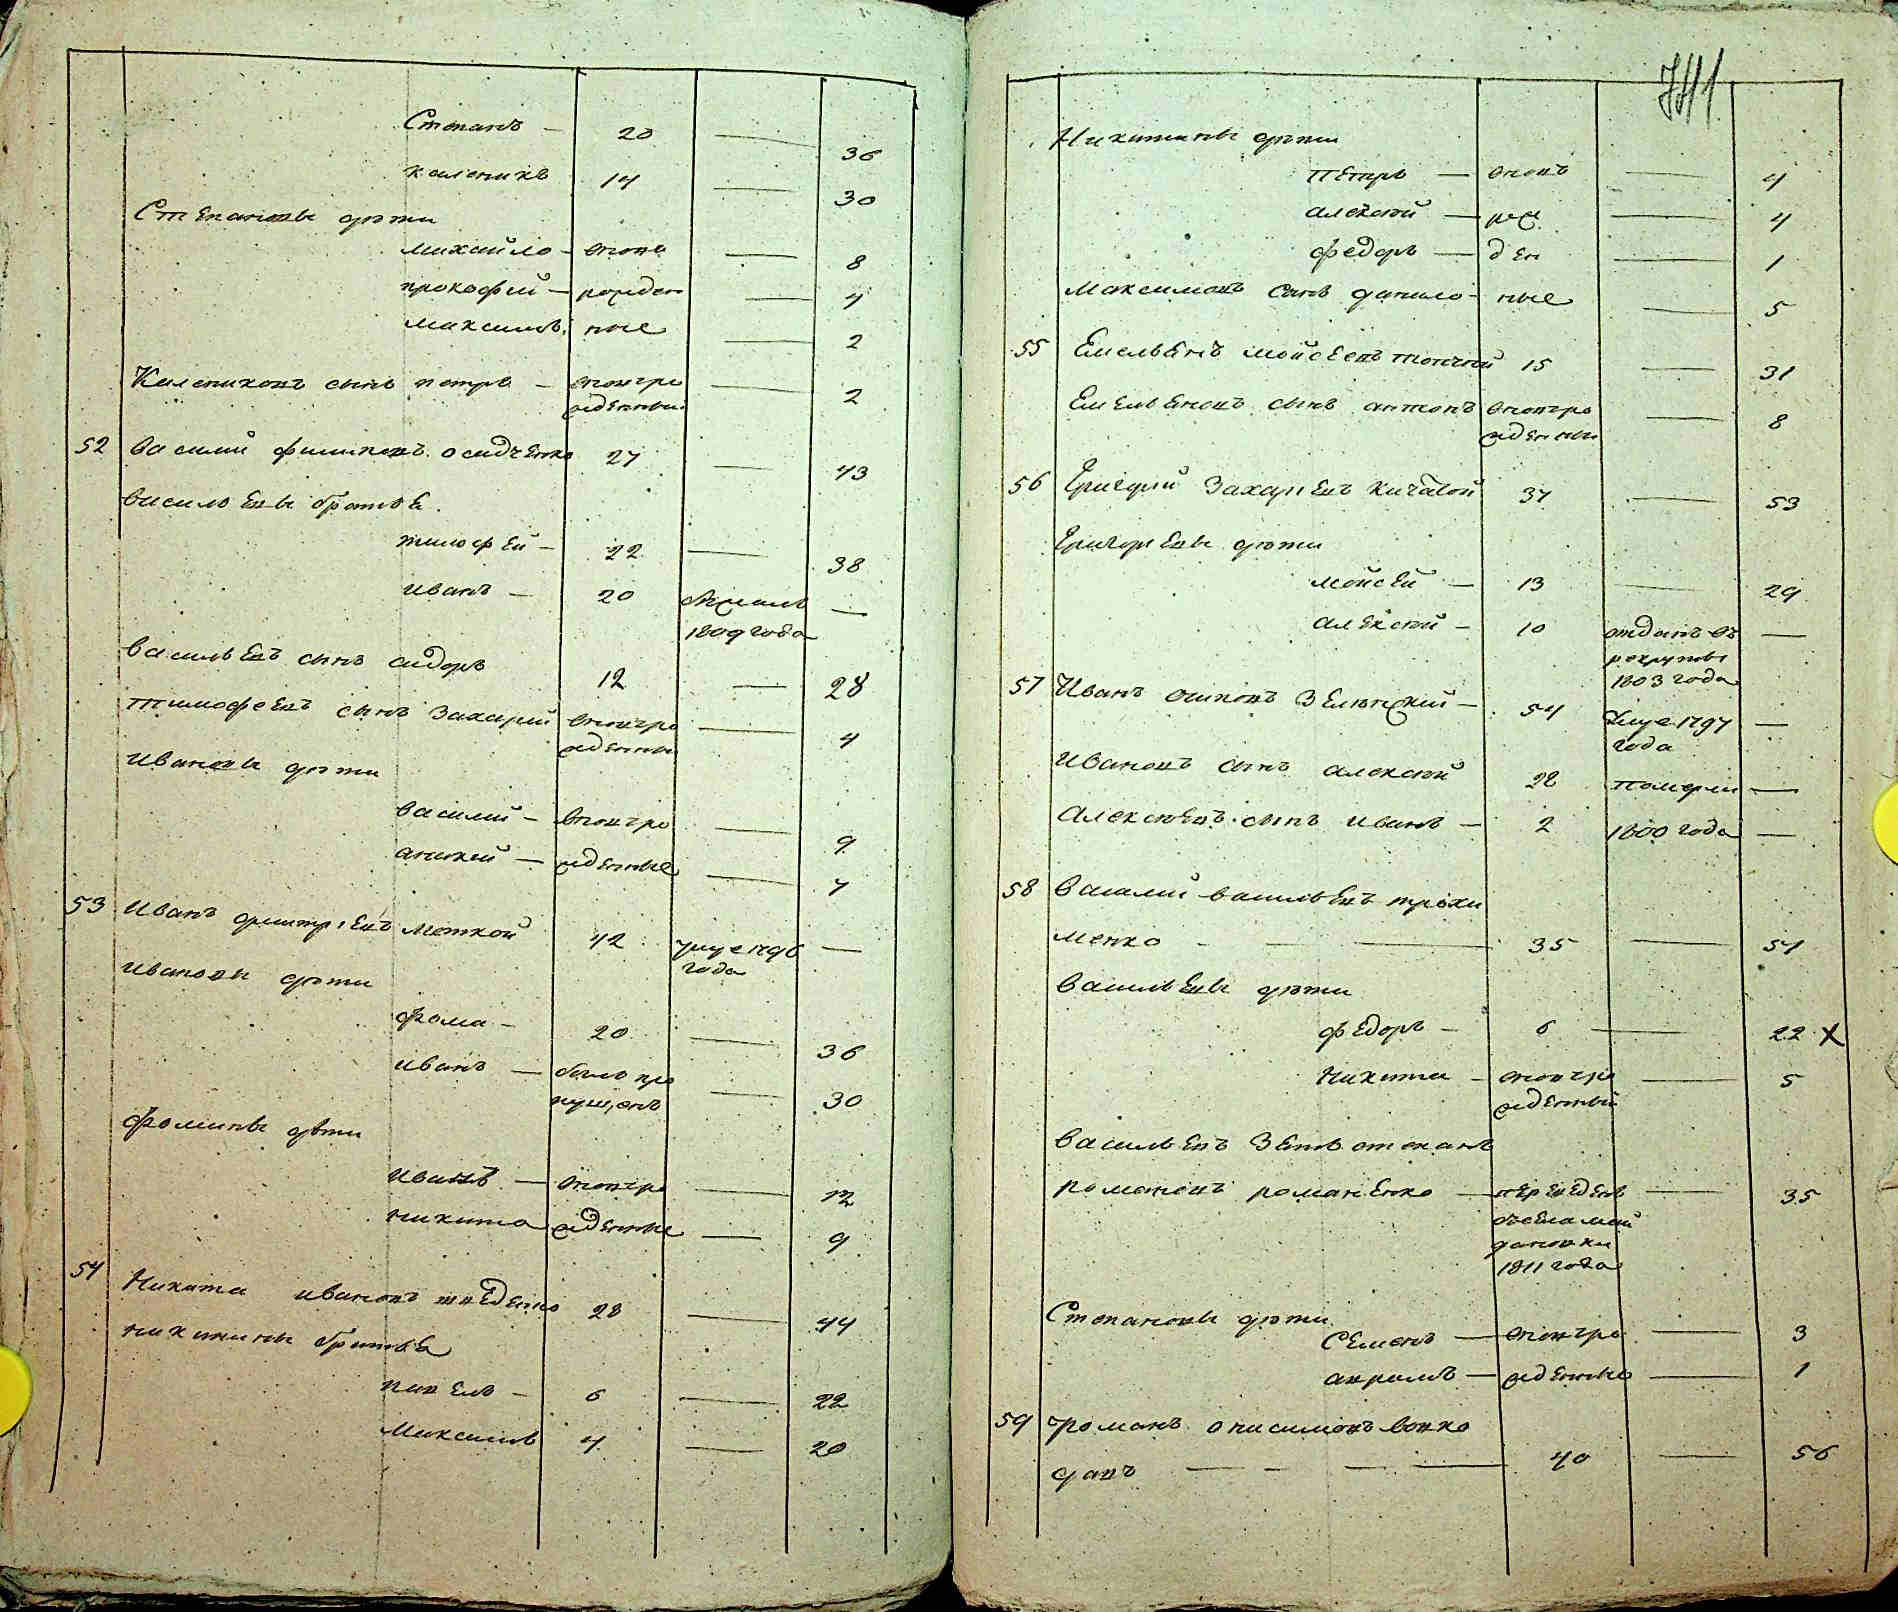 Степанъ — 20 — 36
каленикъ 14 — 30
Степановы дѣти
михайло — вновь — 8
прокофий — рожден — 4
максимъ ные — 2
Калениковъ сынъ петръ — вновъро — 2
жденный
52 василий филиповъ осадченко 27 — 43
василъевы братья
тимофей — 22 — 38
иванъ — 20 —
1809 года
василъевъ сынъ сидоръ 12 — 28
тимофеевъ сынъ захарий вновъро — 4
жденны
ивановы дѣти
василий — вновъро — 9
аникей — жденные — 7
53 иванъ дмитриевъ 42 умре 1796 —
года
ивановы дѣти
фома — 20 — 36
иванъ — былъ про — 30
пущенъ
фомины дѣти
иванъ — вновъро — 12
никита жденные — 9
54 Никита ивановъ шведенко 28 — 44
никитины братья
павелъ — 6 — 22
максимъ 4 — 20
741
Никитины дѣти
петръ — вновъ — 4
алексѣй — рож — 4
федоръ — ден — 1
максимовъ сынъ данило — ные — 5
55 Емельянъ мойсеевъ 15 — 31
Емельяновъ сынъ антонъ вновъро — 8
жденны
56 Григорий Захариевъ 37 — 53
Григориевы дѣти
мойсей — 13 — 29
алексѣй — 10 отданъ въ —
рекруты
1803 года
57 Иванъ осиповъ — 54 умре 1797 —
года
Ивановъ сынъ алексѣй 22 померли —
алексѣевъ сынъ иванъ — 2 1800 года —
58 василий васильевъ трохи
менко — 35 — 51
васильевы дѣти
федоръ — 6 — 22 X
никита — вновъро — 5
жденный
васильевъ зять степанъ
романовъ романенко — переведенъ — 35
1811 года
Степановы дѣти
Семенъ — вновъро — 3
авраамъ — жденные — 1
59 романъ онисимовъ вовко
давъ — 40 — 56